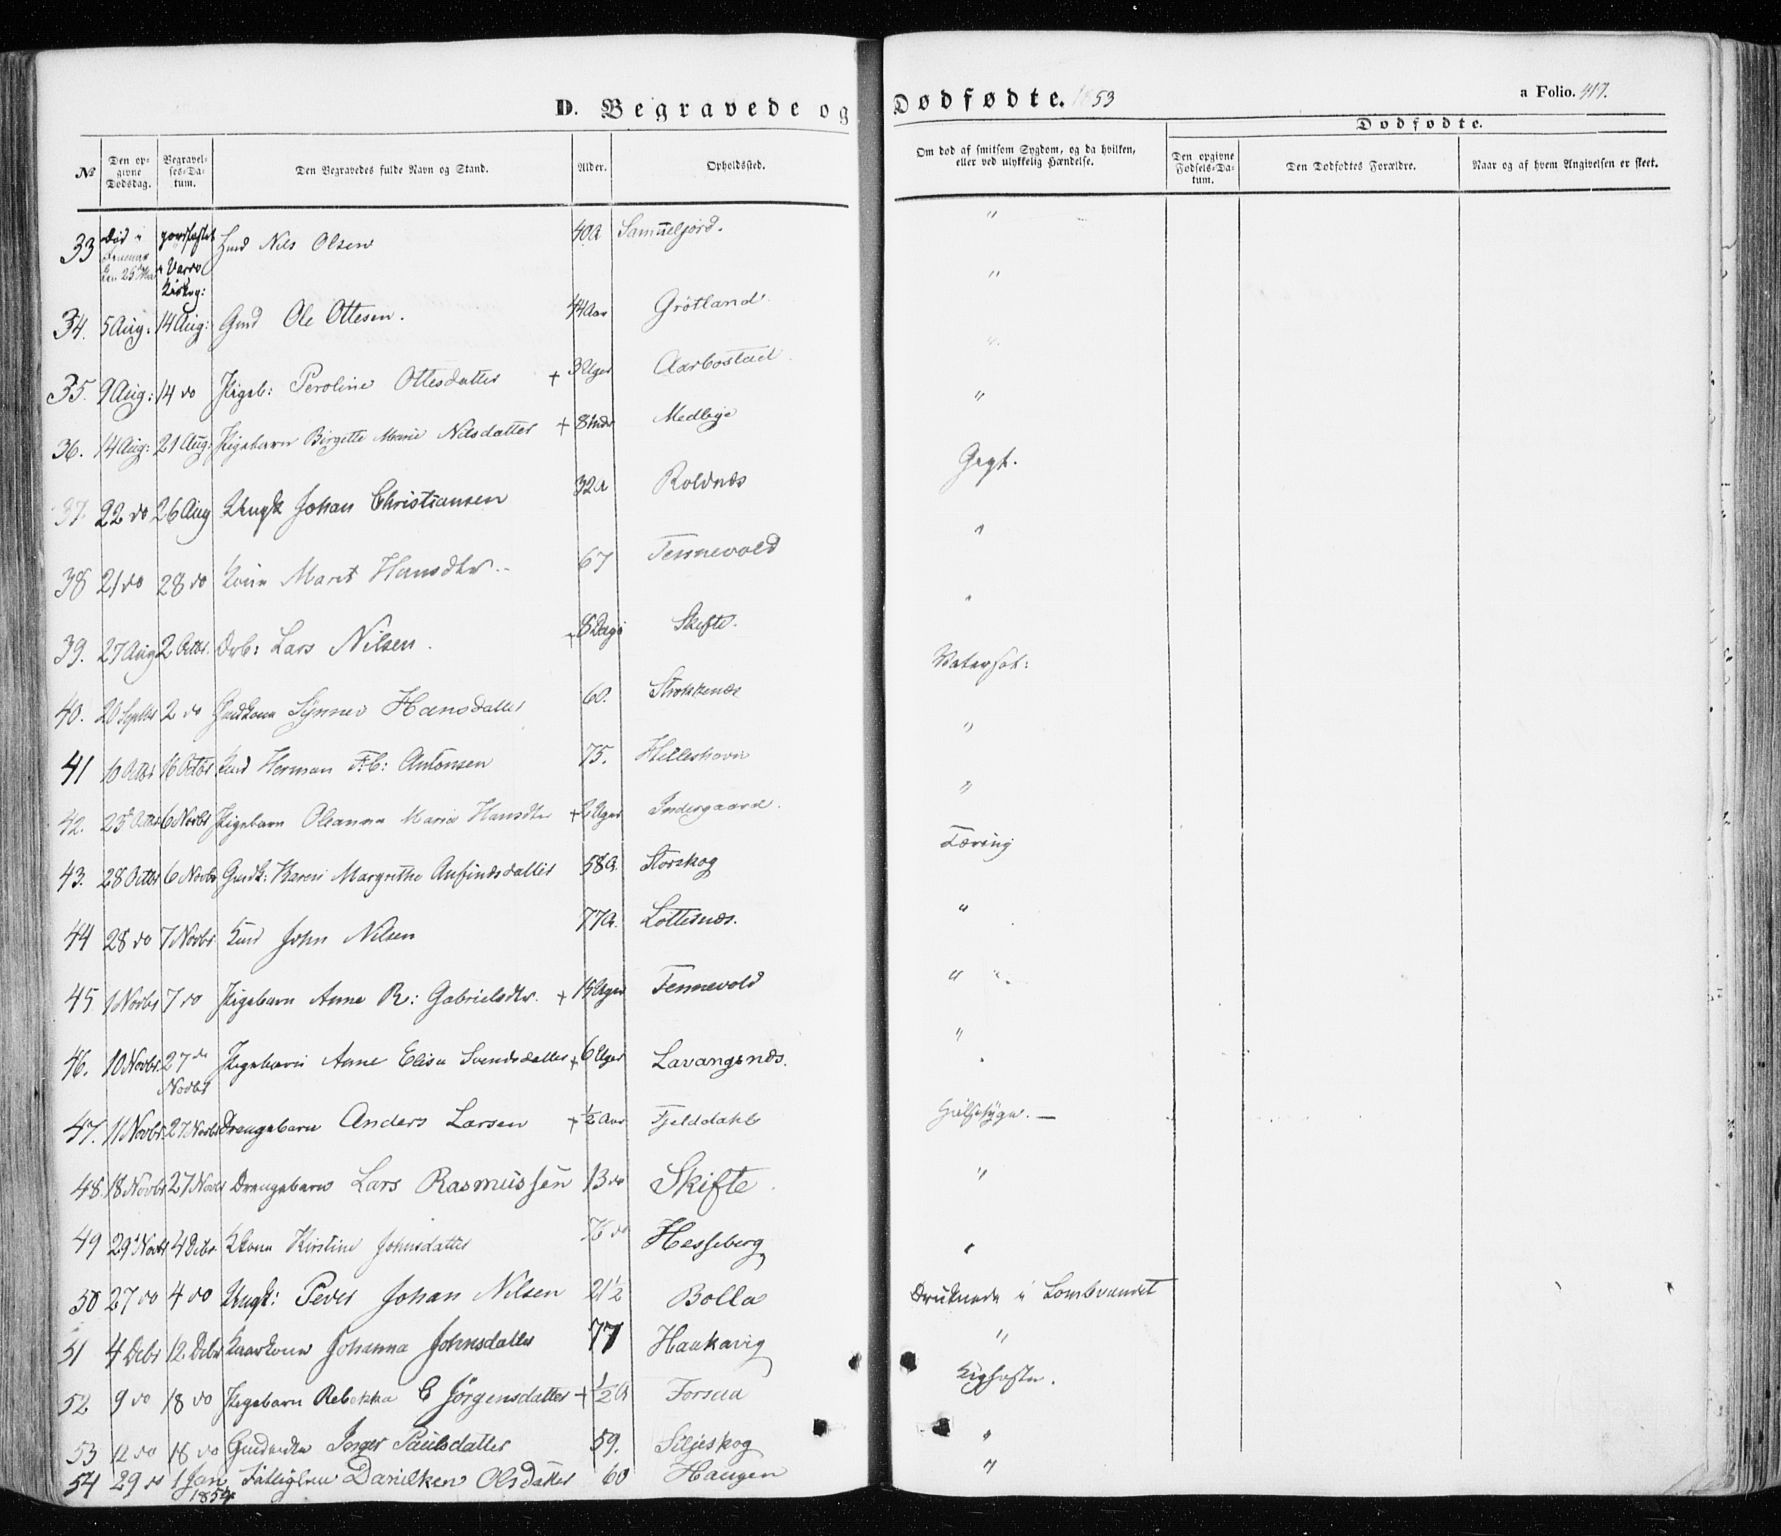 D. Begravede og Dødfødte. 1853
a Folio. 417.
Dødfødte.
No
Den opgivne Dødsdag.
Begravelses-Datum.
Den Begravedes fulde Navn og Stand.
Alder.
Opholdssted.
Om død af smitsom Sygdom, og da hvilken, eller ved ulykkelig Hændelse.
Den opgivne Fødsels-Datum.
Den Dødfødtes Forældre.
Naar og af hvem Angivelsen er skeet.
33 død i den 25 Nils Olsen 40a Samueljord. "
34. 5 Aug: 14 Aug: Gmd Ole Ottesen. 44 Aar Grotland "
35. 9 Aug: 14 do Pigeb: Peroline Ottesdatter + 3 Uger Aarbostad "
36. 14 Aug: 21 Aug: Pigebarn Birgitte Marie Nilsdatter + 8 Mdr Medbye "
37. 22 do 26 Aug Ungk Johan Christiansen 32a Roldnæs Gigt.
38 21 do 28 do Marit Hansdtr. 67 Tennevold "
39. 27 Aug 2 Octbr. Drb: Lars Nilsen. + 8 Dage Skifte. "
40. 20 Septbr 2 do Gmdkone Synnev Hansdatter 60. Strokkenæs Vatersot:
41 10 Octbr 16 Octbr. Herman F.C: Antonsen 75. Helleshavn "
42. 23 Octbr 6 Novbr Pigebarn Oleanna Maria Hansdtr + 2 Uger Indergaard. "
43. 28 Octbr 6 Novbr Gmdk: Karen Margrethe Anfindsdatter 58a. Storskog Tæring
44 28 do 7 Novbr John Nilsen 77a. Lottesnæs. "
45 1 Novbr 7 do Pigebarn Anne R: Gabrielsdtr. + Uger Tennevold "
46. 10 Novbr. 27de Novbr Pigebarn Anne Elisa Svendsdatter + 6 Uger Lavangsnæs. "
47. 11 Novbr. 27 Novbr Drengebarn Anders Larsen + 1/2 Aar Fjelddahl Halssyge. —
48. 18 Novbr 27 Novbr Drengebarn Lars Rasmussen 13 do Skifte "
49 29 Novbr 4 Debr. Kone Kirstine Johnsdatter 76 do Hesseberg "
50 27 do 4 do Ungk: Peder Johan Nilsen 21 1/2 Bolla Druknede i Lombvandet
51 4 Debr 12 Debr Kaarkone Johanna Johnsdatter 77 Haukavig "
52 9 do 18 do Pigebarn Rebekka E Jörgensdatter + 1/2 a Forsaa Kighoste.
53 12 do 18 do Inger Paulsdatter 59. Siljeskog "
54 29 do 1 Jan 1854. Danielken Olsdatter 60 Haugen "